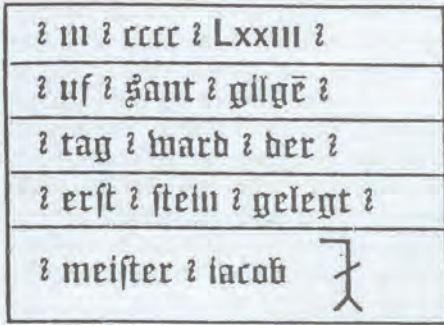 ⁊ m ⁊ cccc ⁊ Lxxiii ⁊
⁊ uf ⁊ sant ⁊ gilgē ⁊
⁊ tag ⁊ ward ⁊ der ⁊
⁊ erſt ⁊ ſtein ⁊ gelegt ⁊
⁊ meiſter ⁊ iacob